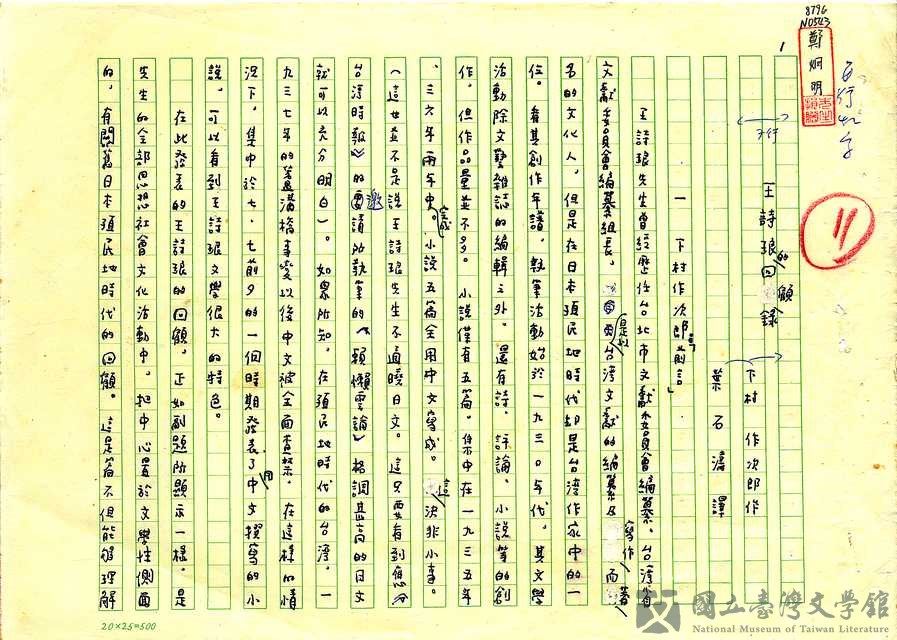 8796
N0543
鄭烱明
1
百行42字
7行
11
王詩琅的回顧錄
下村作次郎作
葉石濤譯
一 下村作次郎前言
王詩琅先生曾經歷任台北市文獻委員會編纂、台灣省
文獻委員會編纂組長,是以台灣文獻的編纂及寫作而著
名的文化人,但是在日本殖民地時代却是台灣作家中的一
位。看其創作年譜,執筆活動始於一九三〇年代。其文學
活動除文藝雜誌的編輯之外,還有詩、評論、小說等的創
作,但作品量並不多。小說僅有五篇,集中在一九三五年
、三六年兩年中完成。小說五篇全用中文寫成。這決非小事。
(這也並不是說王詩琅先生不通曉日文。這只要看到應
台灣時報》的邀請所執筆的《賴懶雲論》格調甚高的日文
就可以充分明白)。如眾所知,在殖民地時代的台灣,一
九三七年的蘆溝橋事變以後中文被全面查禁。在這樣的情
況下,集中於七、七前夕的一個時期發表了用中文撰寫的小
說,可以看到王詩琅文學很大的特色。
在此發表的王詩琅的回顧,正如副題所顯示一樣,是
先生的全部思想社會文化活動中,把中心置於文學性側面
的,有關舊日本殖民地時代的回顧。這是篇不但能够理解
20×25=500
國立臺灣文學館
National Museum of Taiwan Literature